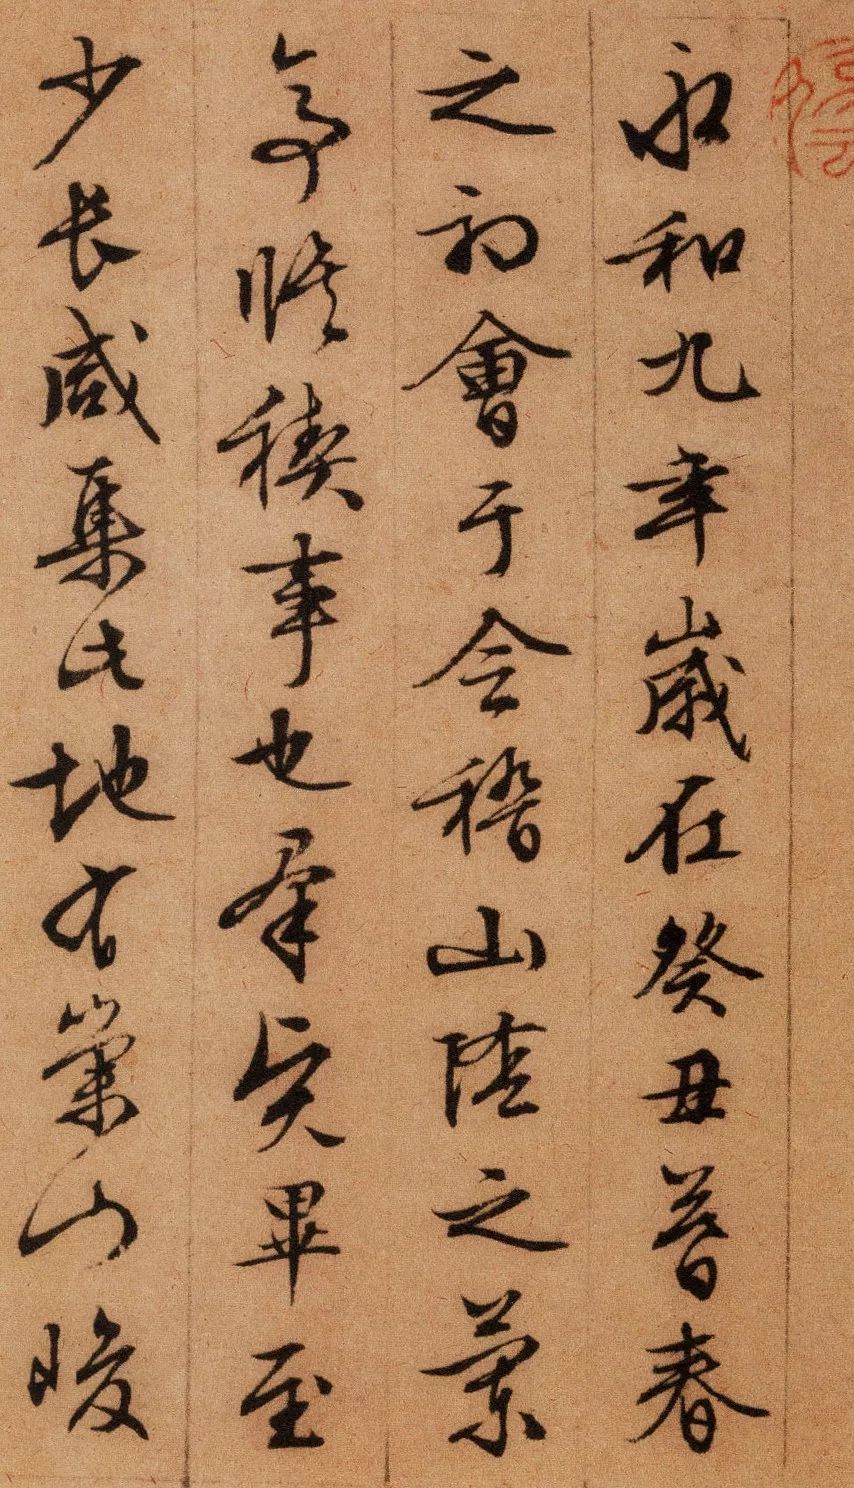 永和九年歲在癸丑暮春
之初會于会稽山陰之蘭
亭脩稧事也羣賢畢至
少長咸集此地有崇山峻